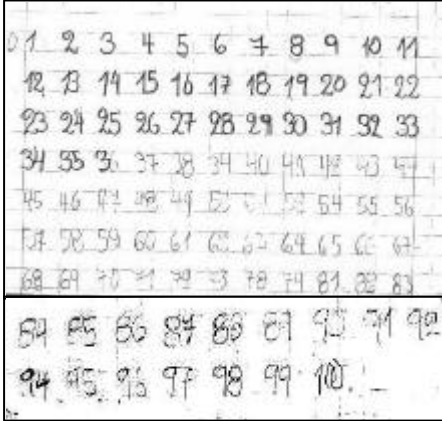 0 1 2 3 4 5 6 7 8 9 10 11
12 13 14 15 16 17 18 19 20 21 22
23 24 25 26 27 28 29 30 31 32 33
34 35 36 37 38 39 40 41 42 43 44
45 46 47 48 49 50 53 54 55 56
57 58 59 60 61 62 63 64 65 66 67
68 69 70 71 72 73 78 79 81 82 83
84 85 86 87 88 89 90 91 92
94 95 96 97 98 99 100